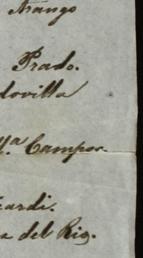 Arango
Prado.
dovilla
yª. Campos.
zardi.
a del Rio.